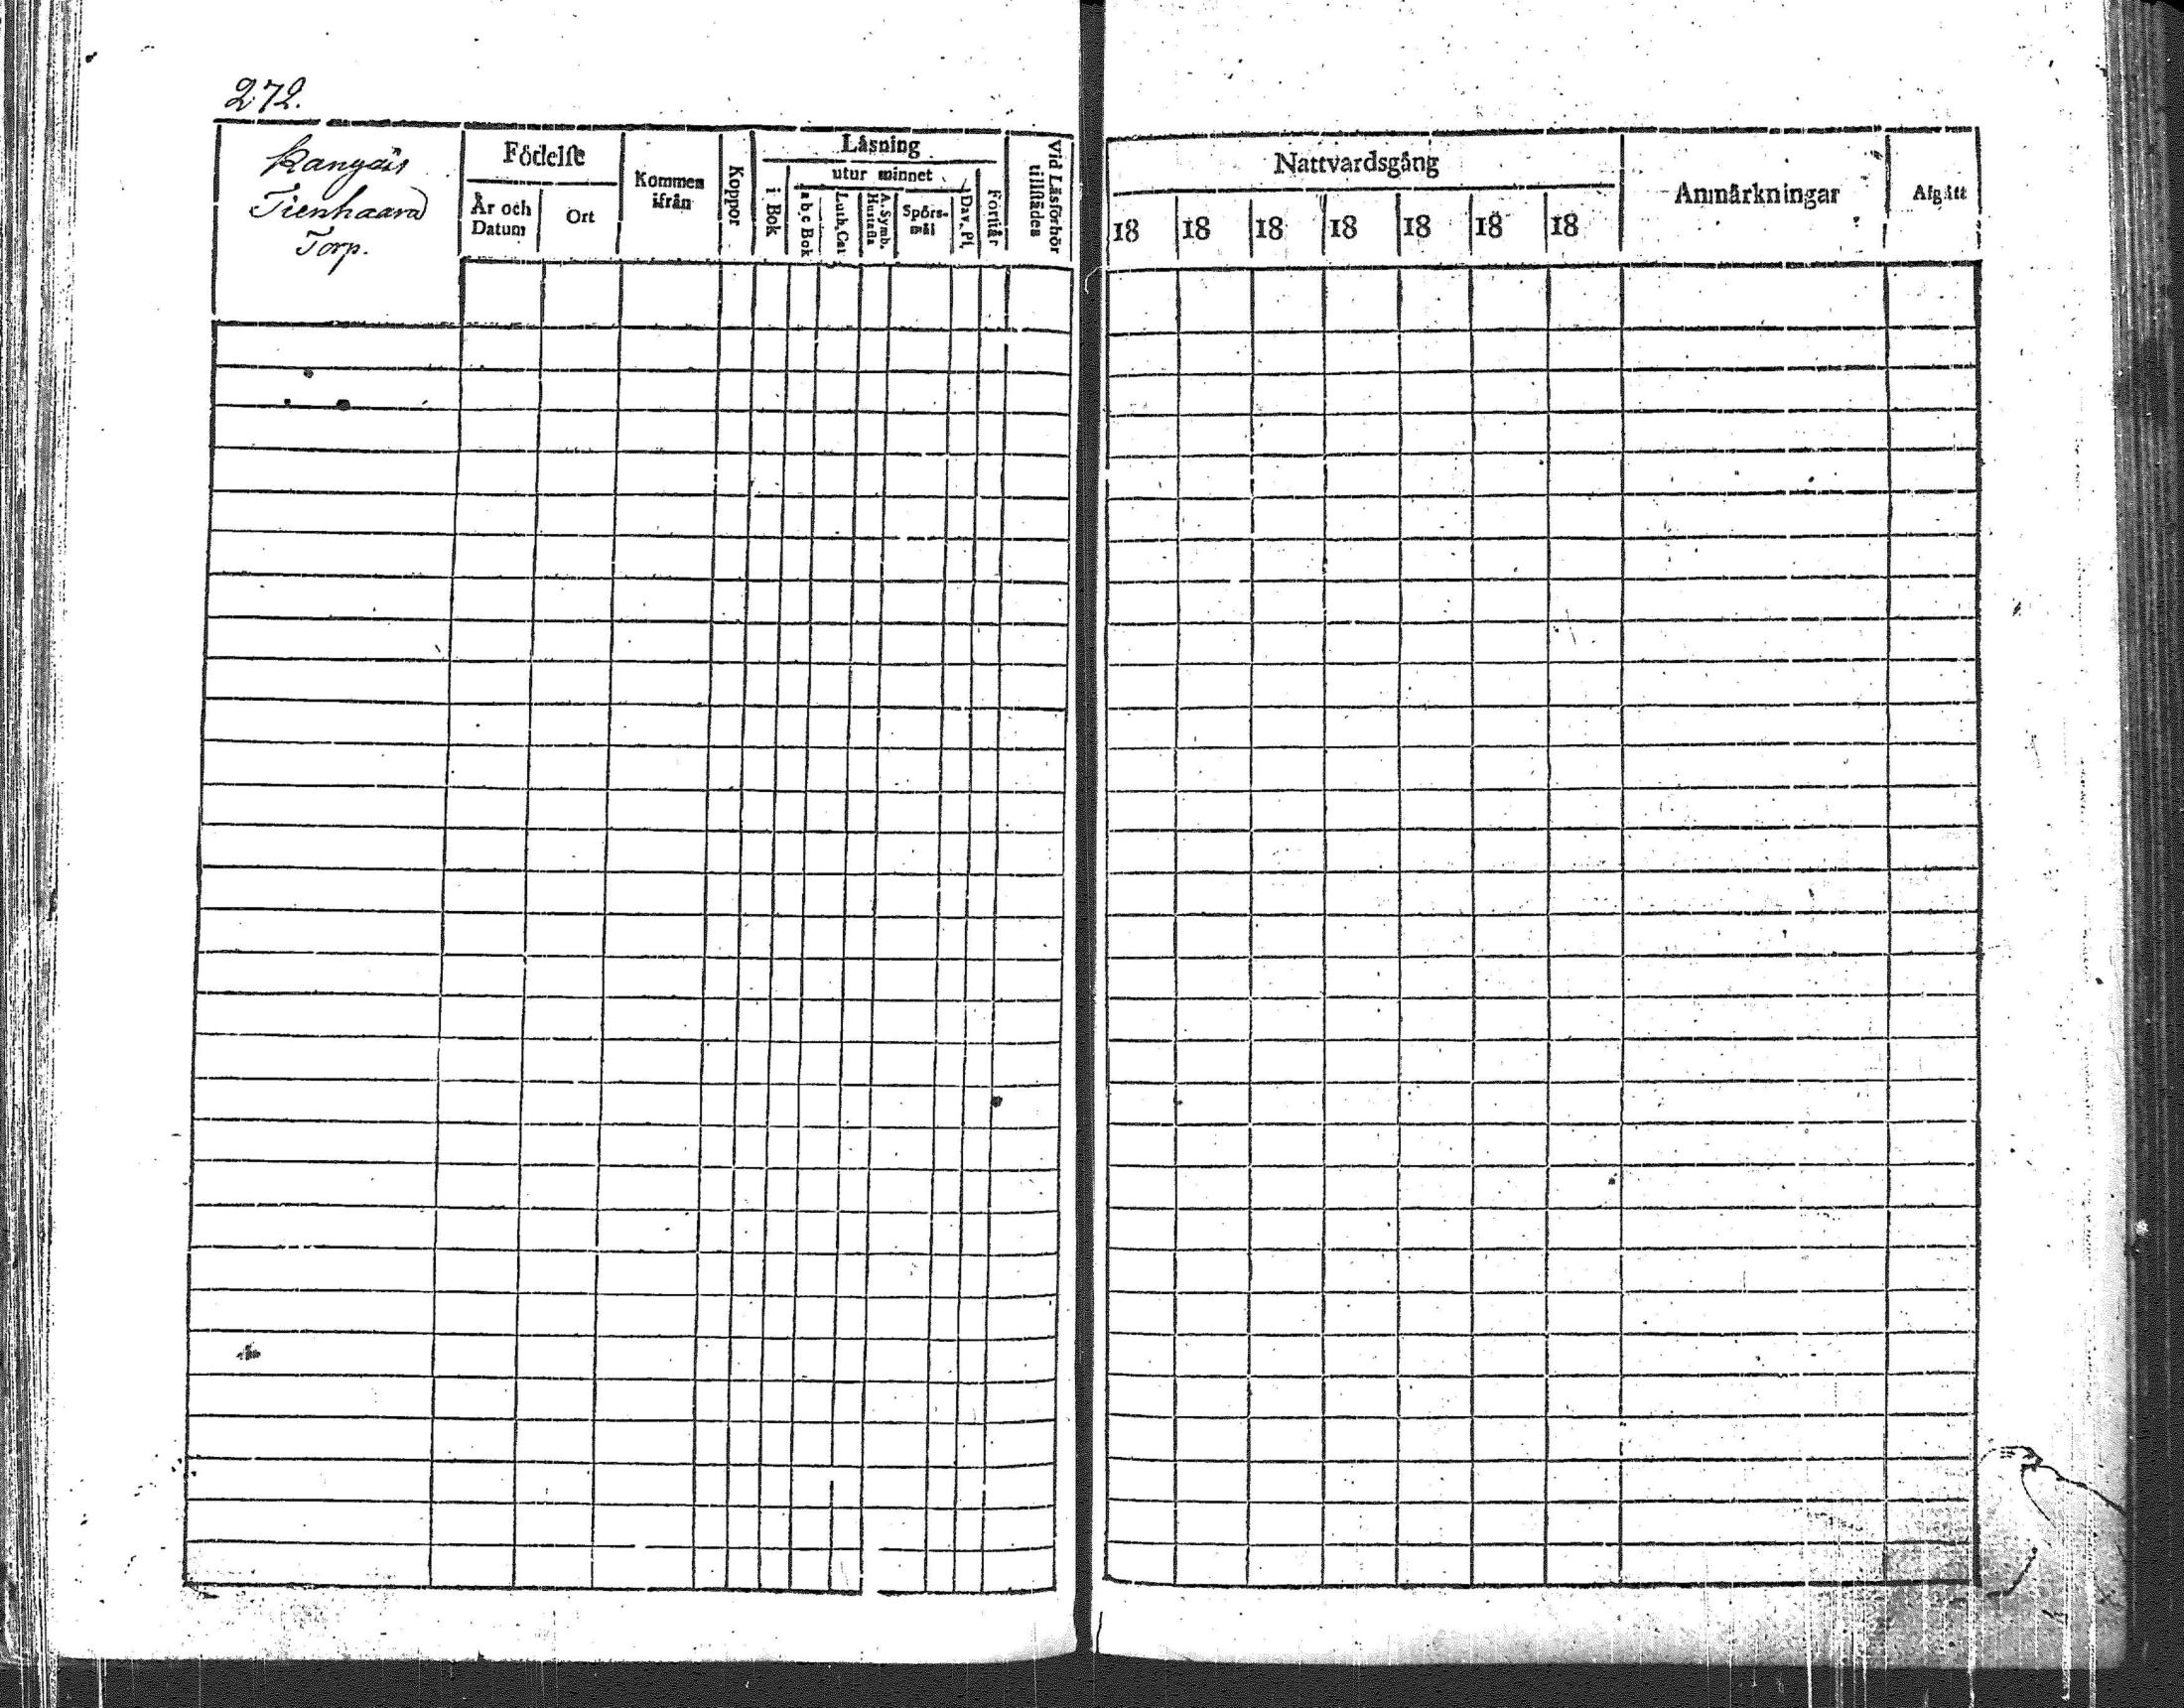 272.
Kangais
Tienhaara
Torp.
Födelse
År och
Datum
Ort
Kommen
ifrån
Koppor
Läsning
i Bok
utur minnet
a b c Bok
Luth. Cat
A. Symb.
Hustafla
Spörs-
mål
Dav. Ps.
Förstår
Vid Läsförhör
tillstädes
Nattvardsgång
18 18 18 18 18 18 18
Anmärkningar
Afgått